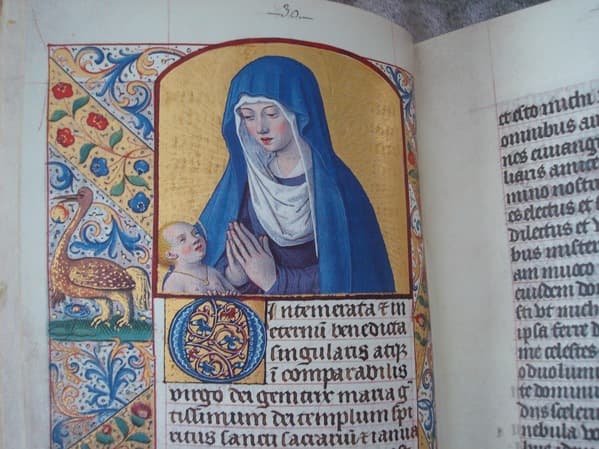 30
O Intemerata & in
eternū benedicta
singularis atqȝ
ī comparabilis
virgo dei genitrix maria g̃
tissimum dei templum spi
ritus sancti sacrariū & ianua
et esto michi
omnibus au
nes euuangi
liaris amice
mino nost
es electus et
dilectus et v
bus mister
am inuoco
eiusdem do
sti vt michi
ipsa ferre d
me celestes
o duo lumi
te dominu
dñs
nebula vo